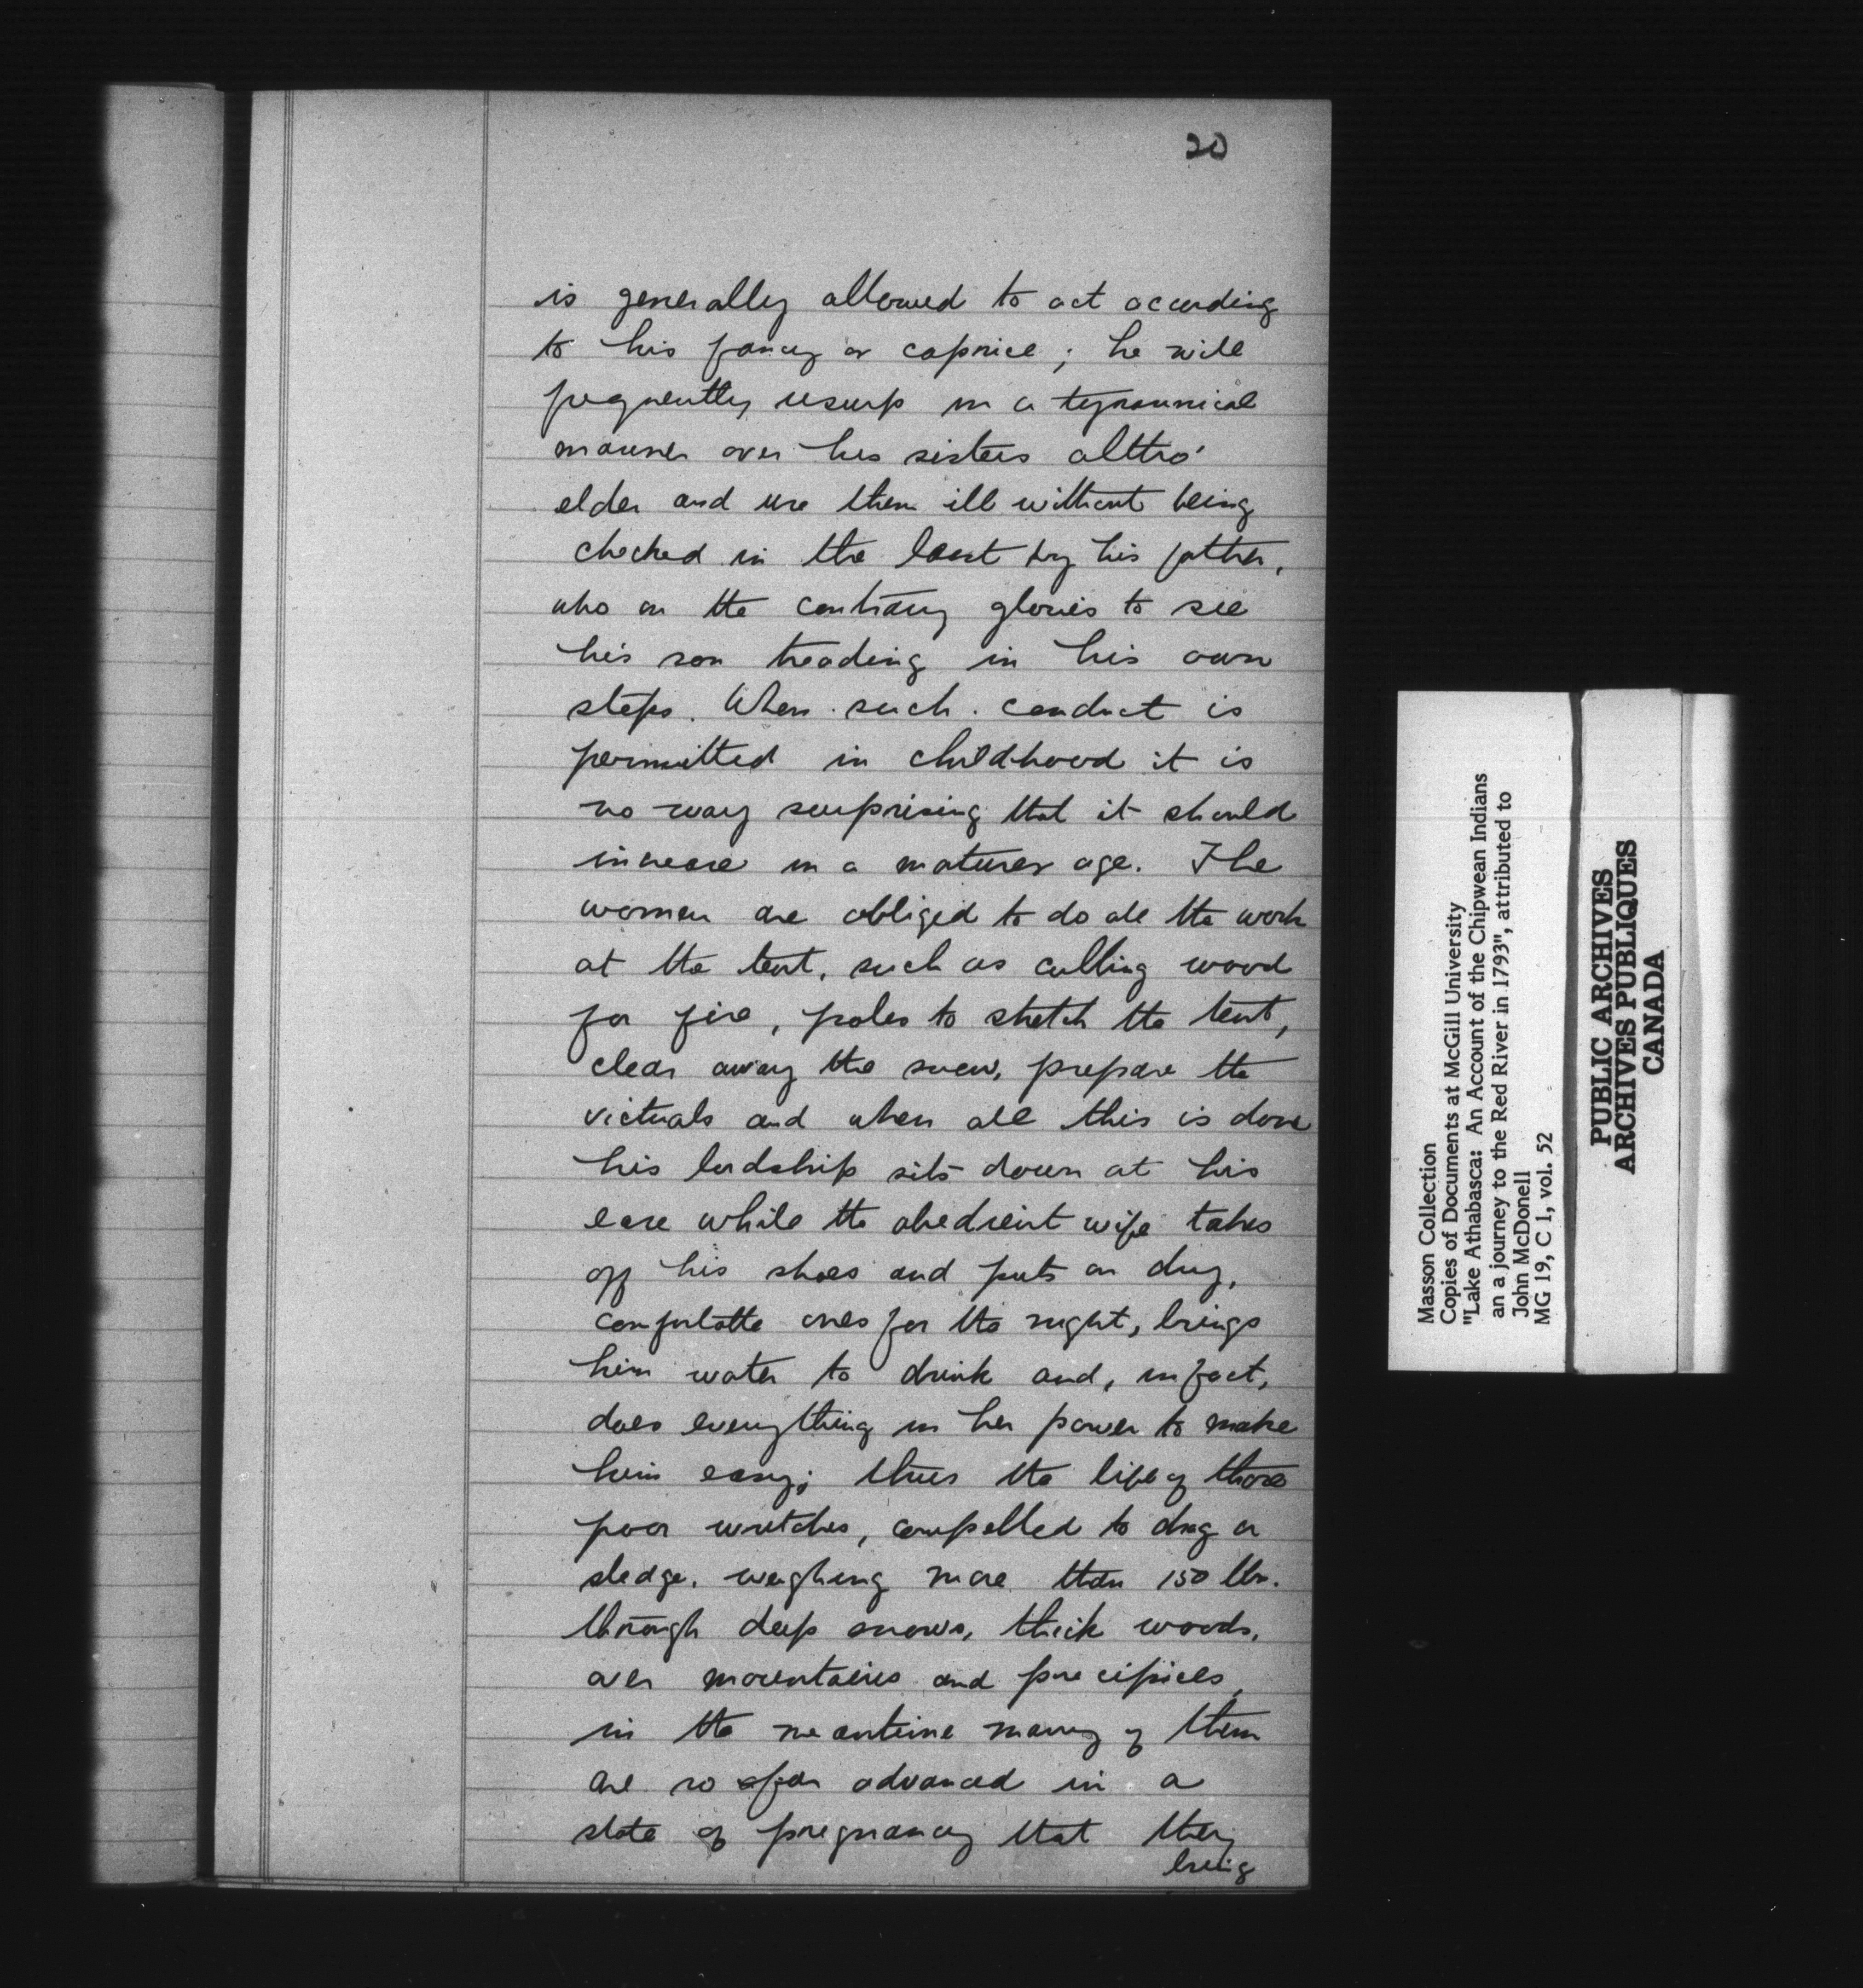 20
is generally allowed to act according
to his fancy or caprice; he will
frequently usurp in a tyrannical
manner over his sisters altho'
elder and use them ill without being
checked in the least by his father,
who on the contrary glories to see
his son treading in his own
steps. When such conduct is
permitted in childhood it is
no way surprising that it should
increase in a maturer age. The
women are obliged to do all the work
at the tent, such as cutting wood
for fire, poles to stretch the tent,
clear away the snow, prepare the
victuals and when all this is done
his lordship sits down at his
ease while the obedient wife takes
off his shoes and puts on dry,
comfortable ones for the night, brings
him water to drink and, in fact,
does everything in her power to make
him easy; thus the life of those
poor wretches, compelled to drag a
sledge, weighing more than 150 lbs.
through deep snows, thick woods,
over mountains and precipices,
in the meantime many of them
are so far advanced in a
state of pregnancy that they
bring
Masson Collection
Copies of Documents at McGill University
"Lake Athabasca: An Account of the Chipwean Indians
an a journey to the Red River in 1793", attributed to
John McDonell
MG 19, C 1, vol. 52
PUBLIC ARCHIVES
ARCHIVES PUBLIQUES
CANADA